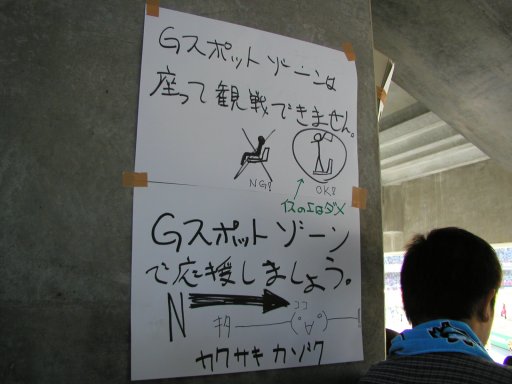 Gスポットゾーンは
座って観戦できません。
NG!
OK!
イスの上はダメ
Gスポットゾーン
で応援しましょう。
N
ココ
キタ
カワサキカゾク